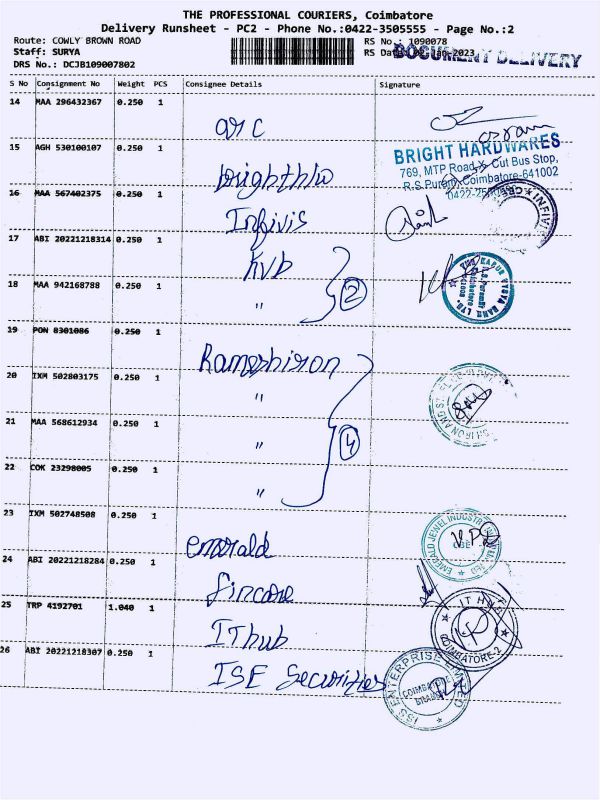 THE PROFESSIONAL COURIERS, Coimbatore
Delivery Runsheet - PC2 - Phone No.:0422-3505555 - Page No.:2
Route: COWLY BROWN ROAD
RS No.: 1090078
Staff: SURYA
RS Dat 02-Jan-2023
DOCUMENT DELIVERY
DRS No.: DCJB109007802
S No Consignment No Weight PCS Consignee Details Signature
14 MAA 296432367 0.250 1
arc
15 AGH 530100107 0.250 1
BRIGHT HARDWARES
769, MTP Road X, Cut Bus Stop,
R.S.Puram, Coimbatore-641002
16 MAA 567402375 0.250 1
Infivis
17 ABI 20221218314 0.250 1
kvb
18 MAA 942168788 0.250 1
" 2
19 PON 8301086 0.250 1
Rameshiron
20 IXM 502803175 0.250 1
"
21 MAA 568612934 0.250 1
" 4
22 COK 23298005 0.250 1
"
23 IXM 502748508 0.250 1
emerald
EMERALD JEWEL INDUSTRY
CBE
24 ABI 20221218284 0.250 1
fincare
25 TRP 4192701 1.040 1
IThub
ITHUB
COIMBATORE-2
26 ABI 20221218307 0.250 1
ISE Securities
ISS ENTERPRISE LIMITED
COIMBATORE
BRANCH